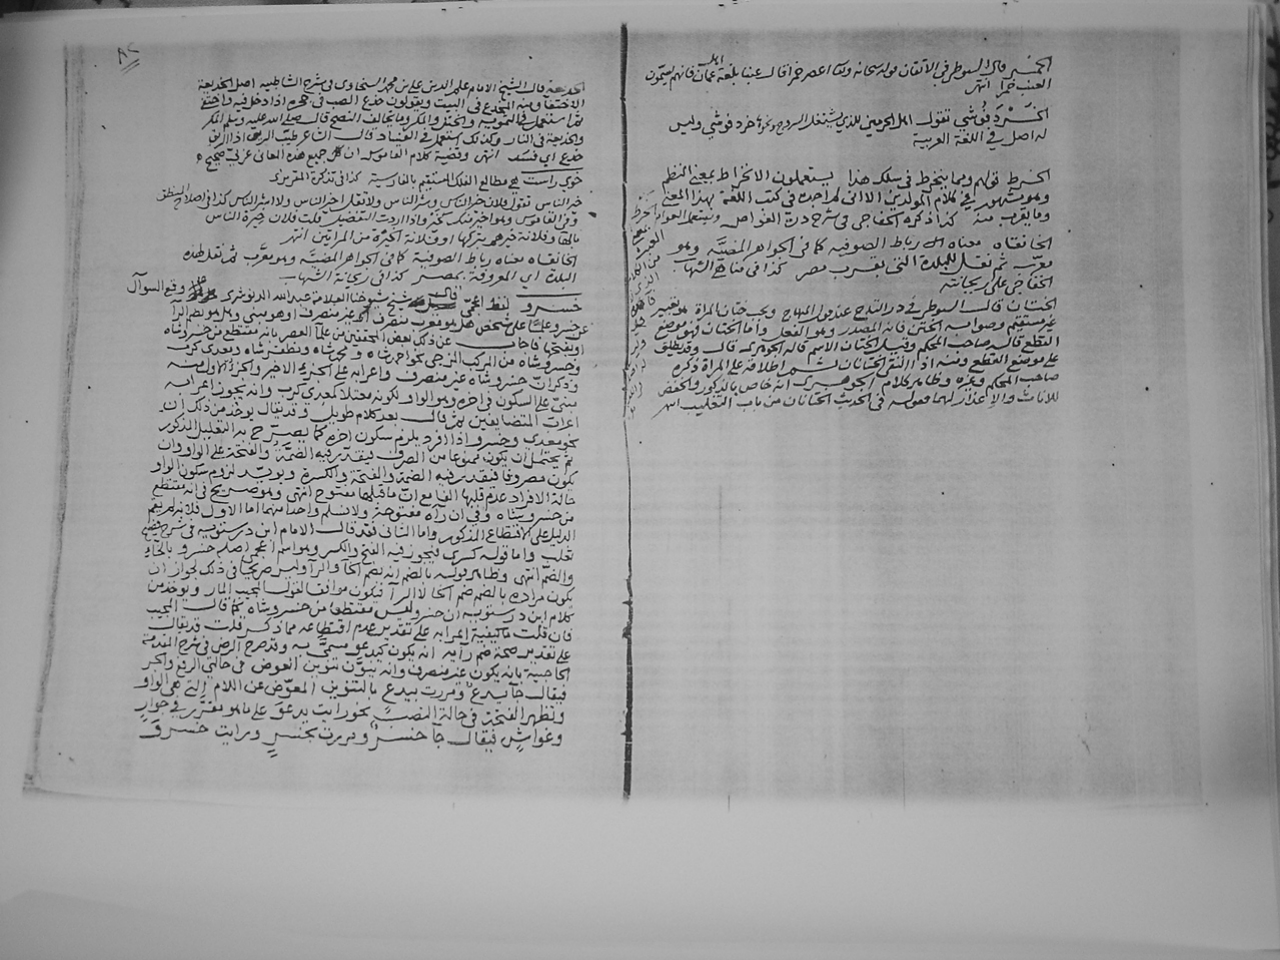 الخمر قال السيوطي في الاتقان قوله سبحانه وتعالى اعصر خمرا قال عنبا بلغة اهل عمان فانهم يسمون
العنب خمرا انتهى
الخردة فوشي تقول اهل الحرمين للذي خرده فوشي وليس
له اصل في اللغة العربية
الخرط قولهم ومما ينخرط في سلك هذا يستعملون الانخراط بمعنى النظم
وهو مشهور في كلام المولدين الا اني لم اجده في كتب اللغة بهذا المعنى
وما يقرب منه كذا ذكره الخفاجي في شرح درة الغواص
الخانقاه معناه رباط الصوفيه كما في الجواهر المضية وهو
معرب ثم نقل للبلدة التي بقرب مصر كذا في
الخفاجي على ريحانته
الختان قال السيوطي في
غير مستقيم وصوابه الختن فانه المصدر وهو الفعل واما الختان فهو موضع
القطع قاله صاحب المحكم وقيل الختان الاسم قاله الجوهري قال وقد يطلق
على موضع القطع ومنه اذا التقى الختانان اطلاقه على المراة ذكره
صاحب المحكم وغيره وظاهر كلام الجوهري انه خاص بالذكور والخفض
للاناث والاعذار لهما فقوله في الحديث الختانان من باب التغليب انتهى
٨٢
الخديعة قال الشيخ الامام علم الدين علي بن محمد السخاوي في شرح الشاطبيه اصل الخديعة
الاختفا ومنه المخدع في البيت ويقولون خدع الضب في جحره اذا دخل فيه واختفى
ثم استعمل في التمويه والختل والمكر وما يخالف النصح قال صلى الله عليه وسلم المكر
والخديعة في النار وكذلك استعمل في الفساد قال الشاعر طيب الريق اذا الريق
خدع اي فسد انتهى وقضية كلام القاموس ان كل جميع هذه المعاني عربي صحيح
خوى راست هي مطالع الفلك المستقيم بالفارسية كذا في تذكرة المقريزي
خير الناس تقول فلان خير الناس وشر الناس ولا تقل اخير الناس ولا اشر الناس كذا في اصلاح المنطق
وفي القاموس وهو اخير منك كخير واذا اردت التفضيل قلت فلان خيرة الناس
بالهاء وفلانة خيرهم بتركها او فلانة الخيرة من المراتين انتهى
الخانقاه معناه رباط الصوفية كما في الجواهر المضية وهو معرب ثم نقل لهذه
البلدة اي المعروفة بمصر كذا في ريحانة الشهاب
خسرو لفظ اعجمي قال شيخ شيوخنا العلامة عبد الله الدنوشري وقع السوال
عن خسرو علما على شخص هل هو معرب منصرف او غير منصرف او هو مبني وهل هو بضم الرا
او بفتحها فاجاب عن ذلك بعض المحققين من علما العصر بانه مقتطع من خسرو شاه
وخسرو شاه من المركب المزجي نحو احمد شاه ومحمد شاه ونظيره شاه ومعدي كرب
وذكر ان خسرو شاه غير منصرف واعرابه على الجزء الاخير والجزء الاول منه
مبني على السكون في اخره وهو الواو لكونه معتلا كمعدي كرب وانه يجوز اعرابه
اعراب المتضايفين ثم قال بعد كلام طويل وقد يقال يوخذ من ذلك ان
نحو معدي وخسرو اذا افرد يلزم سكون اخره كما يصرح به التعليل المذكور
ثم يحتمل ان يكون ممنوعا من الصرف فيقدر فيه الضمة والفتحة على الواو وان
يكون مصروفا فتقدر فيه الضمة والفتحة والكسرة ويويد لزوم سكون الواو
حالة الافراد عدم قلبها الفا مع ان ما قبلها مفتوح انتهى وهو صريح في انه مقتطع
من خسرو شاه وفي ان راه مفتوحة ولا نسلم واحدا منهما اما الاول فلانه لم يقم
الدليل على الاقتطاع المذكور واما الثاني فقد قال الامام ابن درستويه في شرح فصيح
ثعلب واما قوله كسرى فيجوز فيه الفتح والكسر وهو اسم اعجمي اصله خسرو بالخاء
والضم انتهى وظاهر قوله بالضم انه بضم الخا والرا وليس صريحا في ذلك لجواز ان
يكون مراده بالضم ضم الخا لا الرا فيكون موافقا لقول المجيب المار ويوخذ من
كلام ابن درستويه ان خسرو ليس مقتطعا من خسرو شاه كما قال المجيب
فان قلت ما كيفية اعرابه على تقدير عدم اقتطاعه مما ذكر قلت قد يقال
على تقدير صحة ضم رايه انه يكون كيدعو مسمى به وقد صرح الرضي في شرح المقدمة
الحاجبية بانه يكون غير منصرف وانه ينون تنوين العوض في حالتي الرفع والجر
فيقال جا يدع ومررت بيدع بالتنوين المعوض عن اللام التي هي الواو
وتظهر الفتحة في حالة النصب نحو رايت يدعو على ما هو مقرر في جوار
وغواش فيقال جا خسر ومررت بخسر ورايت خسرو